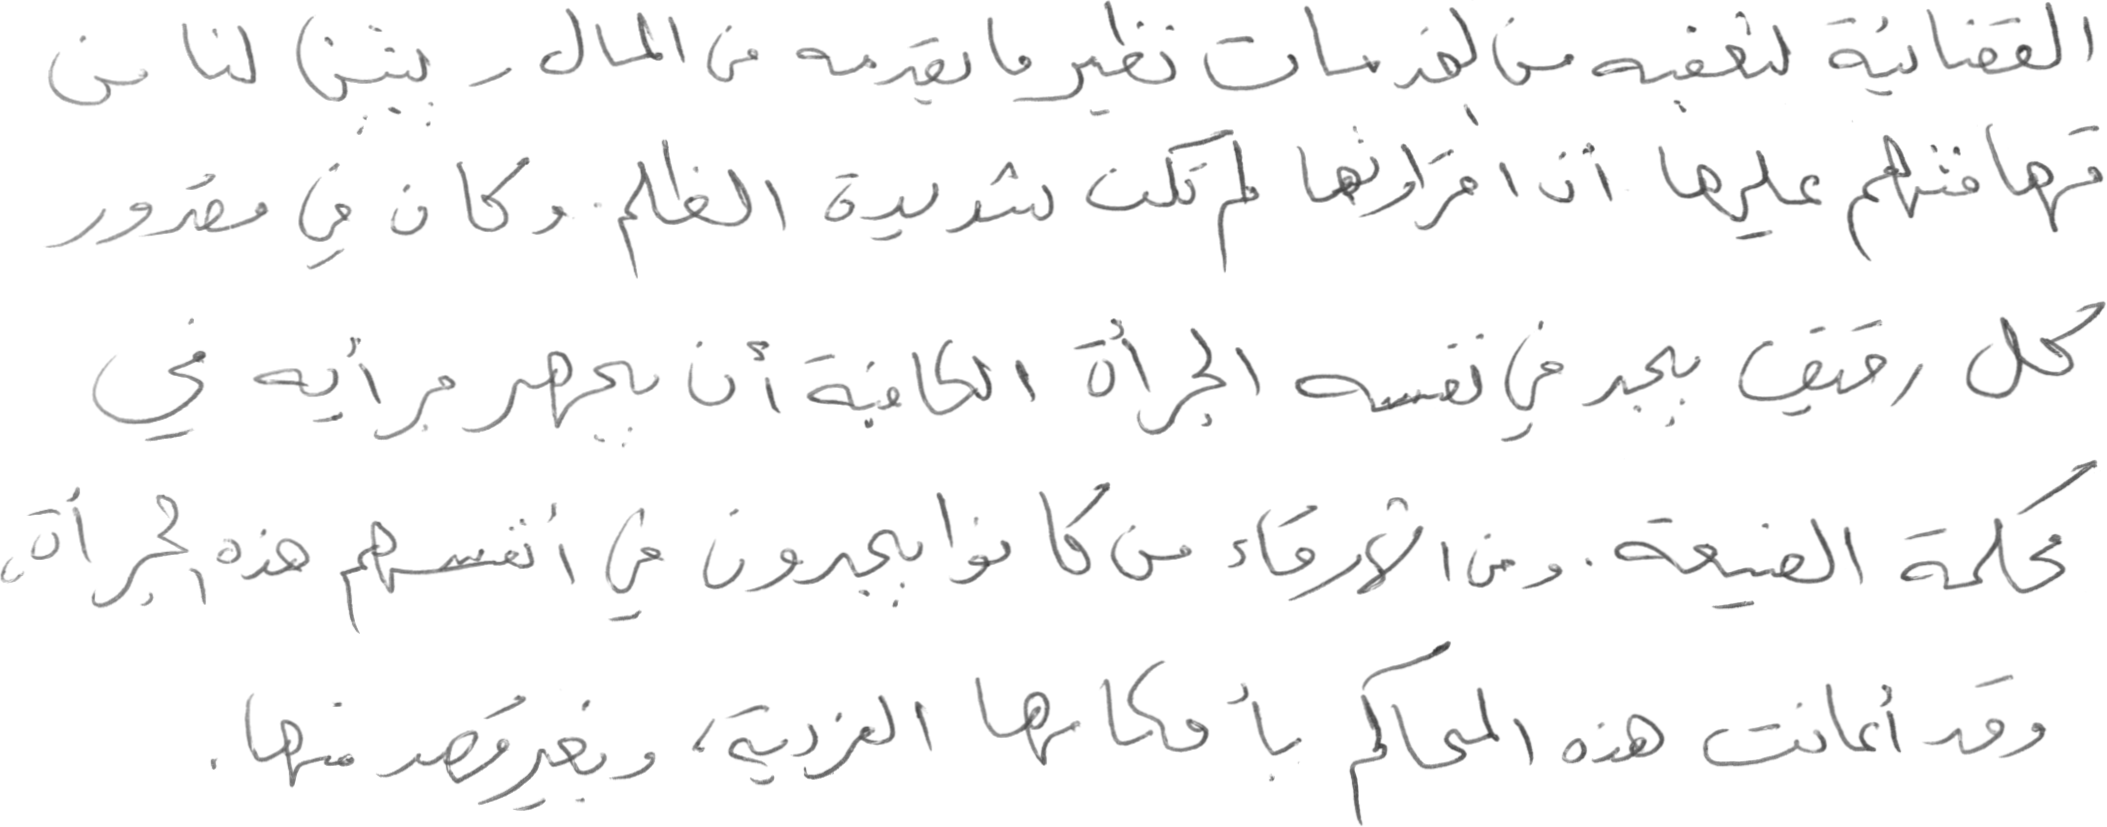 القضائية لتعفيه من الخدمات نظير ما يقدمه من المال ر يتبين لنا من
تهافتهم عليها أن اقراراتها لم تكن شديدة الظلم. وكان في مقدور
كل رقيق يجد في نفسه الجرأة الكافية أن يجهر برأيه في
محكمة الضيعة. ومن الأرقاء من كانوا يجدون في أنفسهم هذه الجرأة،
وقد أعانت هذه المحاكم بأحكامها الفردية، وبغير قصد منها.